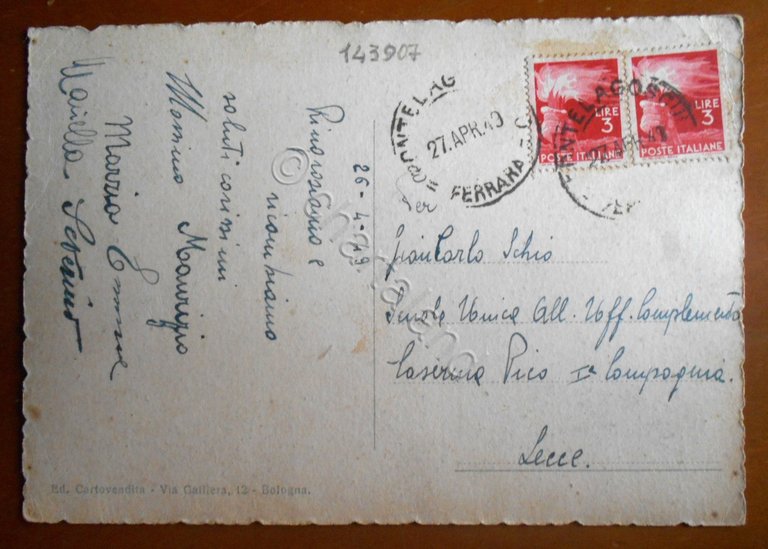 143907
26-4-49
Ringraziamo e
ricambiamo
saluti carissimi
Massimo Maurizio
Marzia
PONTELAG
27.APR.49
FERRARA
PONTELAGOSCURO
27.APR.49
LIRE
3
POSTE ITALIANE
LIRE
3
POSTE ITALIANE
Per
Giancarlo Schio
Scuola Unica All. Uff. Complemento
Caserma Pico Iª Compagnia.
Lecce.
Ed. Cartovendita - Via Galliera, 12 - Bologna.